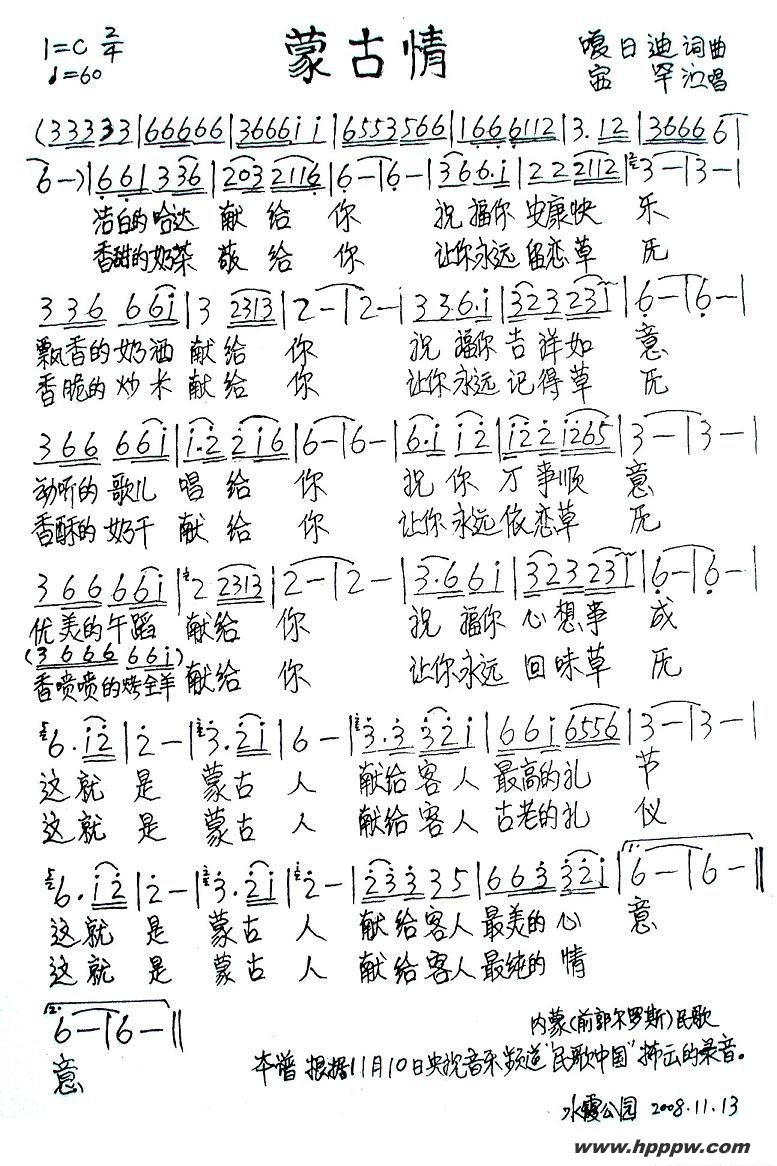 1=C 2/4 蒙古情 嘎日迪词曲
♩=60 宝罕演唱
(33333|66666|3666i i|6553566|1666112|3.12|36666|
6-)|661 336|203 2116|6-|6-|366.i|22 2112|3-|3-|
洁白的哈达 献给你 祝福你 安康快乐
香甜的奶茶 敬给你 让你永远留恋草原
336 66i|3 2313|2-|2-|336.i|323 23i|6-|6-|
飘香的奶酒 献给你 祝福你吉祥如意
香脆的炒米 献给你 让你永远记得草原
366 66i|i.2 2i6|6-|6-|6.i i2|i22 i265|3-|3-|
动听的歌儿 唱给你 祝你万事顺意
香酥的奶干 献给你 让你永远依恋草原
366 66i|2 2313|2-|2-|3.66i|323 23i|6-|6-|
优美的午蹈 献给你 祝福你心想事成
(3666 66i)
香喷喷的烤全羊 献给你 让你永远回味草原
6.i2|2-|3.2i|6-|3.3 32i|66i 6556|3-|3-|
这就是 蒙古人 献给客人最高的礼节
这就是 蒙古人 献给客人古老的礼仪
6.i2|2-|3.2i|2-|23335|663 32i|1.6-|6-‖
这就是 蒙古人 献给客人最美的心意
这就是 蒙古人 献给客人最纯的情
2.6-|6-‖ 内蒙(前郭尔罗斯)民歌
意 本谱根据11月10日央视音乐频道"民歌中国"播出的录音。
水霞公园 2008.11.13
www.hpppw.com